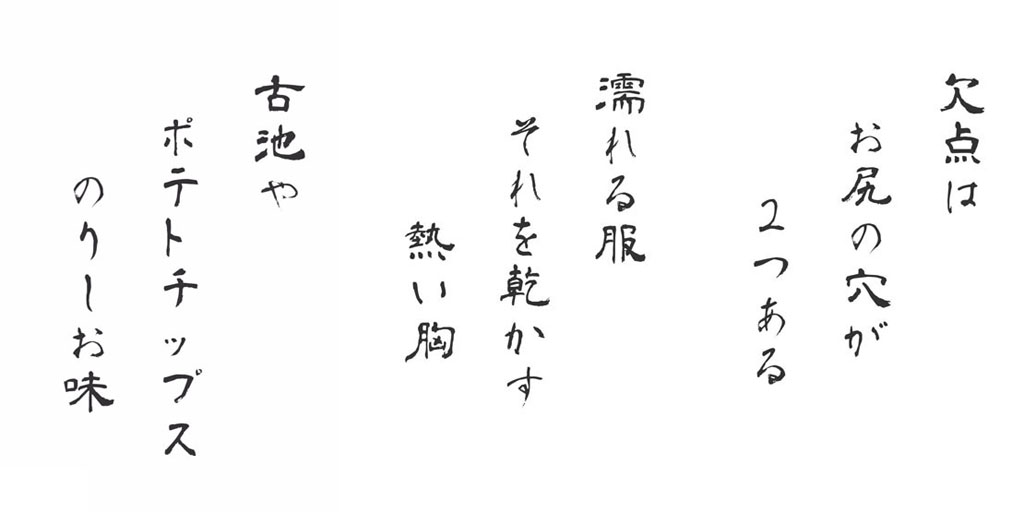 欠点は
お尻の穴が
2つある
濡れる服
それを乾かす
熱い胸
古池や
ポテトチップス
のりしお味